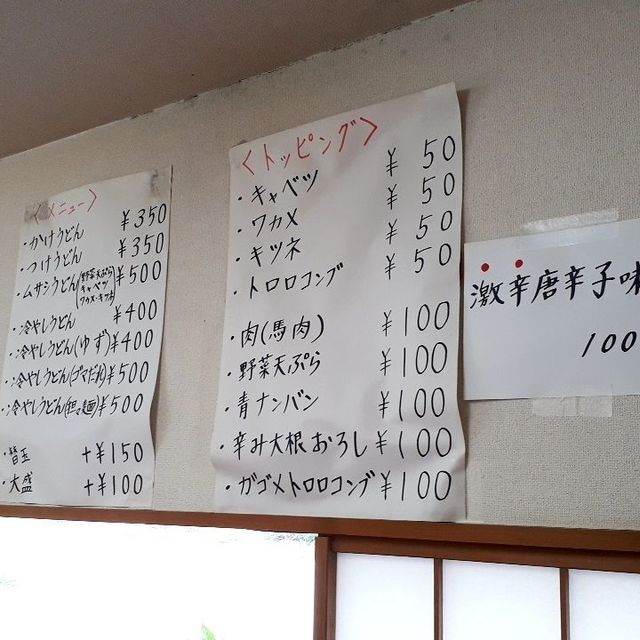 〈メニュー〉
・かけうどん ¥350
・つけうどん ¥350
・ムサシうどん(野菜天ぷら キャベツ ワカメ・キツネ) ¥500
・冷やしうどん ¥400
・冷やしうどん(ゆず) ¥400
・冷やしうどん(ゴマだれ) ¥500
・冷やしうどん(担々麺) ¥500
・替玉 +¥150
・大盛 +¥100
〈トッピング〉
・キャベツ ¥50
・ワカメ ¥50
・キツネ ¥50
・トロロコンブ ¥50
・肉(馬肉) ¥100
・野菜天ぷら ¥100
・青ナンバン ¥100
・辛み大根おろし ¥100
・ガゴメトロロコンブ ¥100
激辛唐辛子味
100